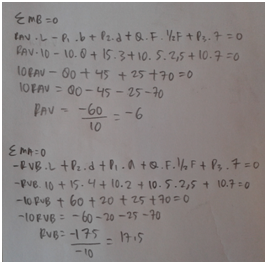 ΣMB=0
RAV.L - P₁.b + P₂.d + Q.F.½F + P₃.7 = 0
RAV.10 - 10.8 + 15.3 + 10.5.2,5 + 10.7 = 0
10RAV - 80 + 45 + 25 + 70 = 0
10RAV = 80 - 45 - 25 - 70
RAV = -60/10 = -6
ΣMA=0
-RVB.L + P₂.d + P₁.a + Q.F.½F + P₃.7 = 0
-RVB.10 + 15.4 + 10.2 + 10.5.2,5 + 10.7 = 0
-10RVB + 60 + 20 + 25 + 70 = 0
-10RVB = -60 - 20 - 25 - 70
RVB = -175/-10 = 17,5